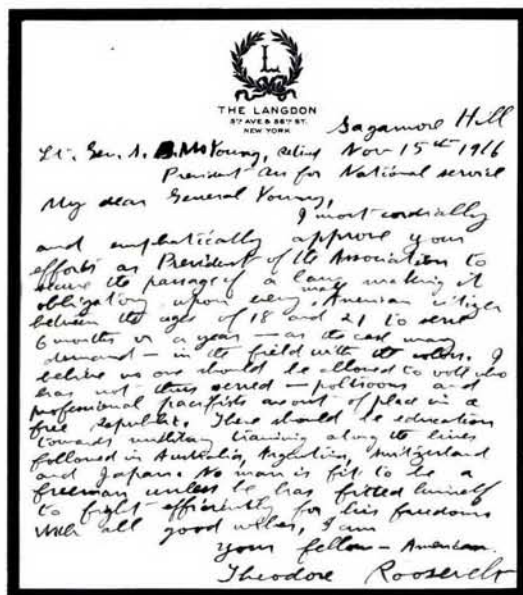 L
THE LANGDON
5TH AVE & 56TH ST.
NEW YORK
Sagamore Hill
Lt. Gen. S. B. M. Young, retired Nov 15th 1916
President Ass for National service
My dear General Young,
I most cordially
and emphatically approve your
efforts as President of the Association to
secure the passage of a law making it
obligatory upon every male American citizen
between the ages of 18 and 21 to serve
6 months or a year — as the case may
demand — in the field with the colors. I
believe no one should be allowed to vote who
has not thus served — and
professional pacifists are out of place in a
free republic. There should be education
towards military training along the lines
followed in Australia, Argentina, Switzerland
and Japan. No man is fit to be a
freeman unless he has fitted himself
to fight efficiently for his freedom
With all good wishes, I am
your fellow – American.
Theodore Roosevelt